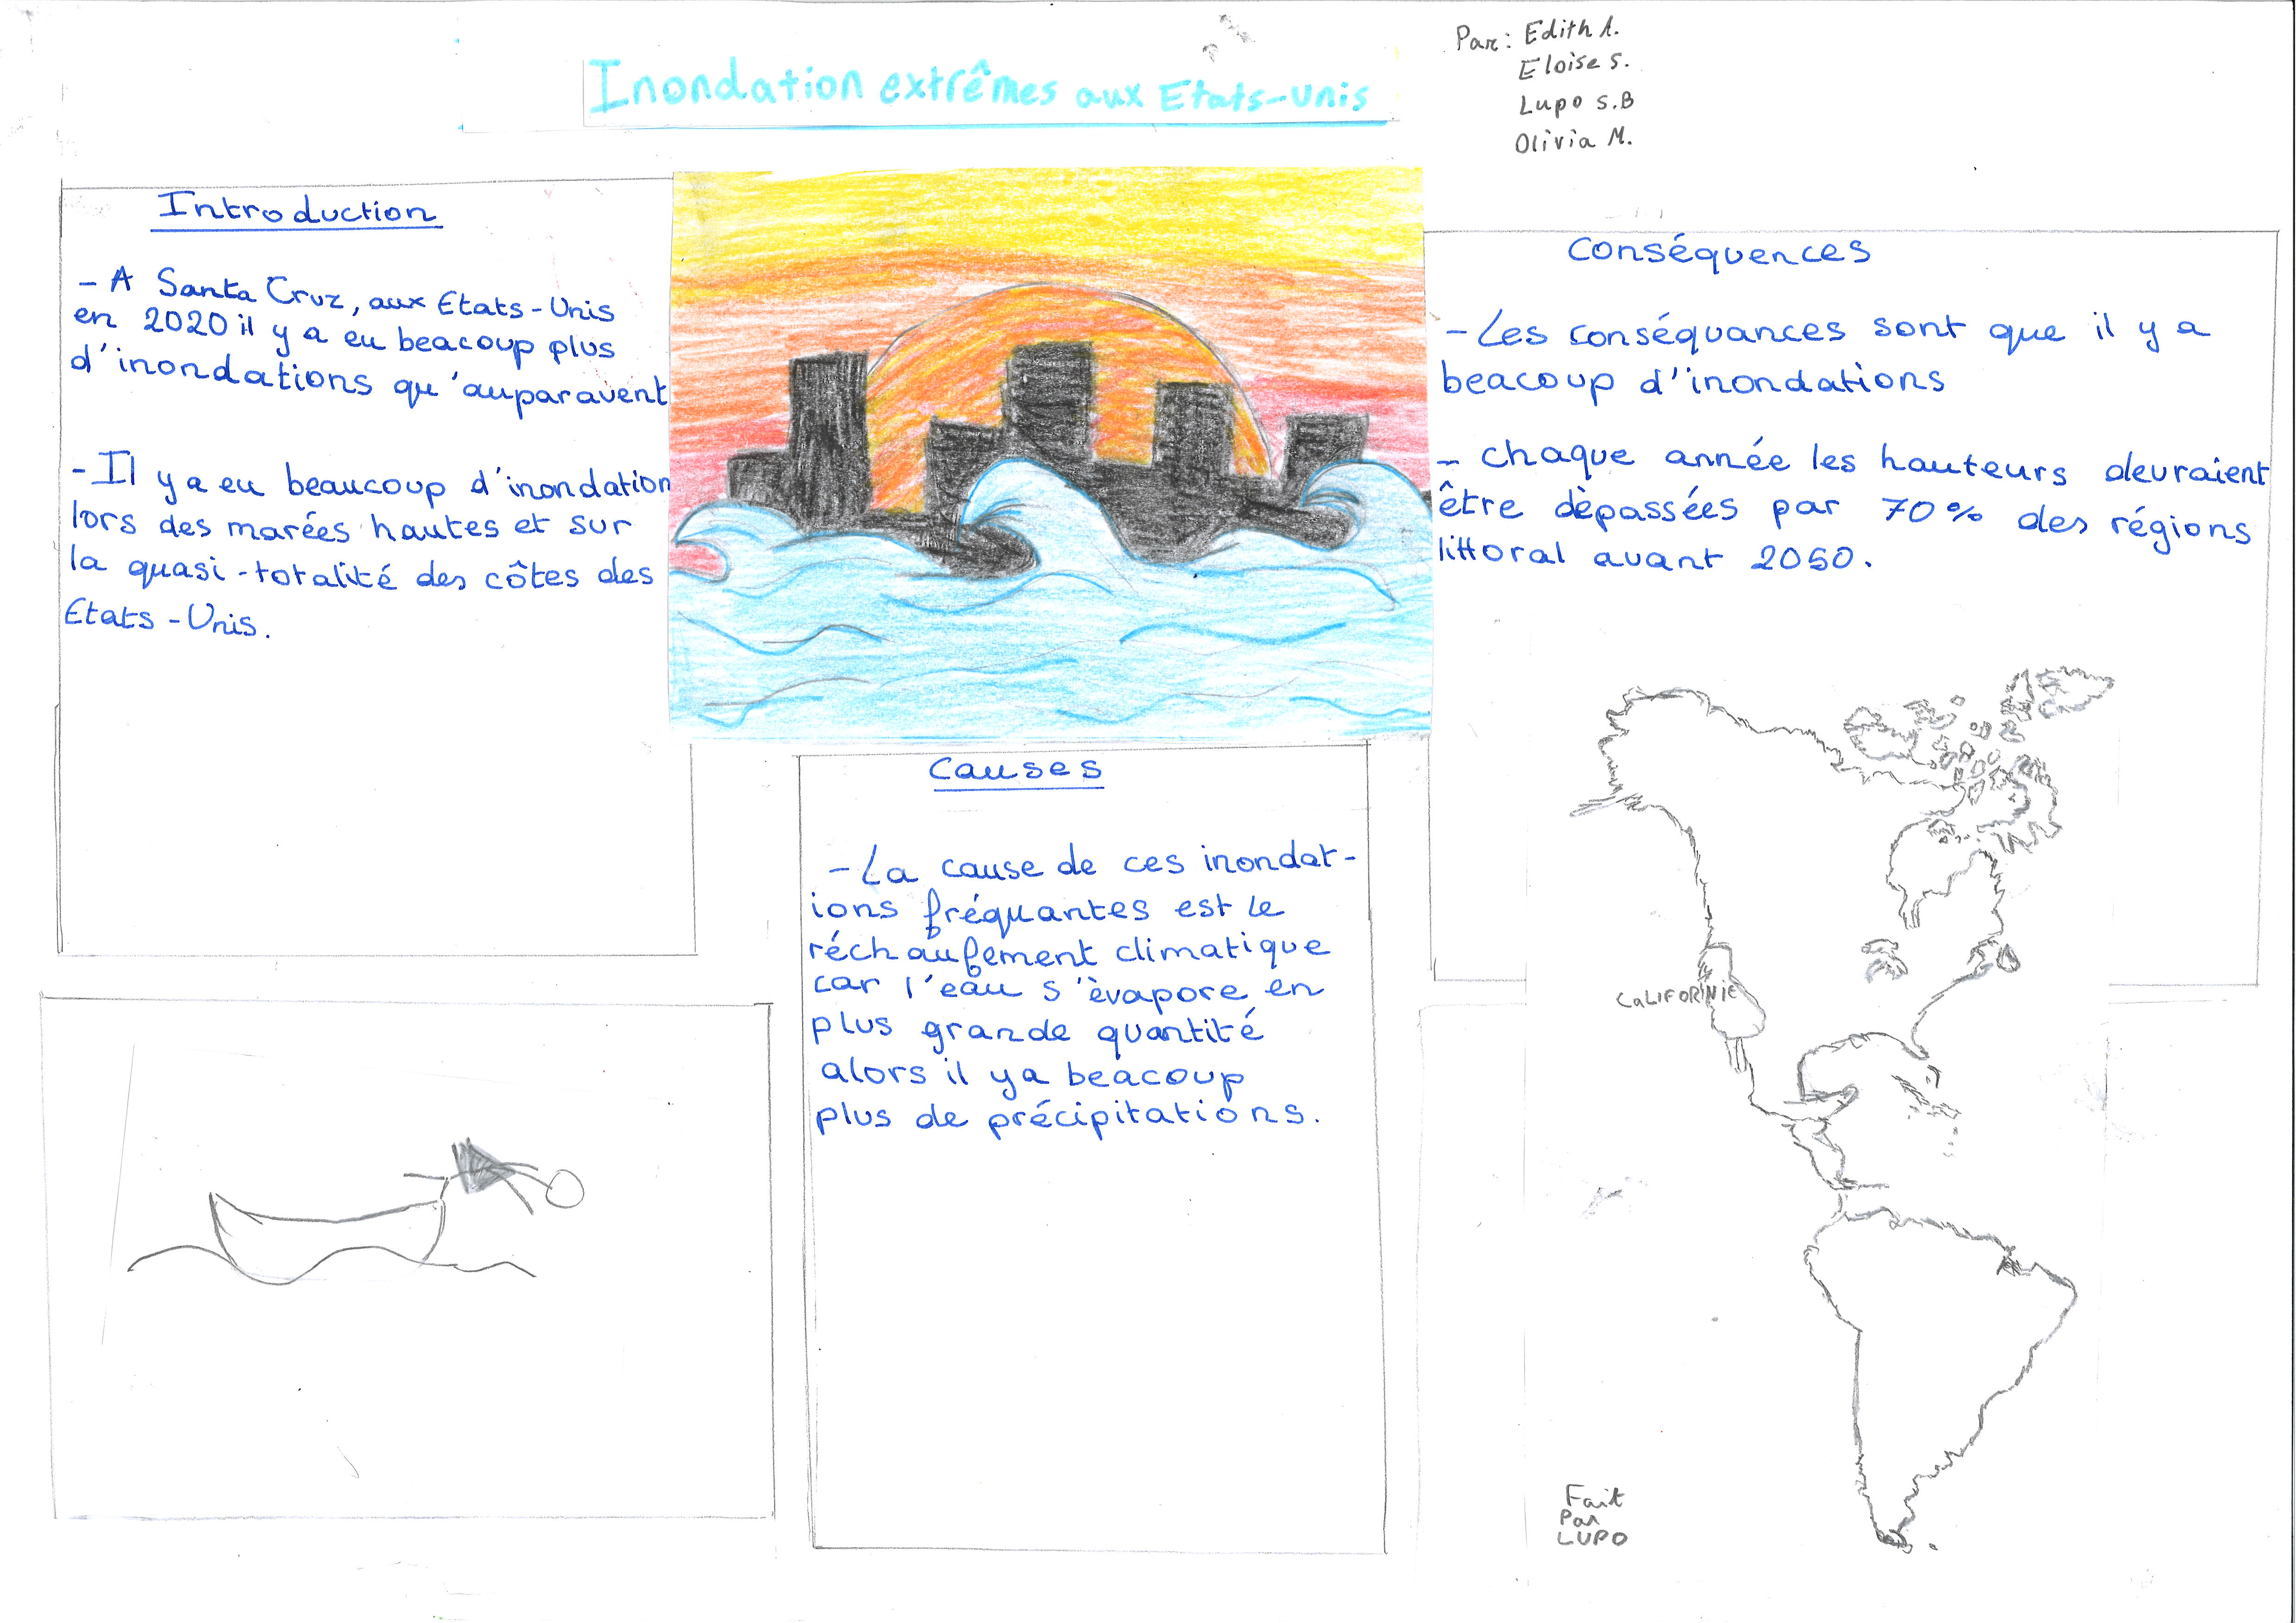 Inondation extrêmes aux Etats-Unis
Par: Edith A.
Eloise S.
Lupo S.B
Olivia M.
Introduction
- A Santa Cruz, aux Etats-Unis
en 2020 il y a eu beacoup plus
d'inondations qu'auparavent
- Il y a eu beaucoup d'inondation
lors des marées hautes et sur
la quasi-totalité des côtes des
Etats-Unis.
Causes
- La cause de ces inondat-
ions fréquantes est le
réchaufement climatique
car l'eau s'èvapore en
plus grande quantité
alors il y a beacoup
plus de précipitations.
Conséquences
- Les conséquances sont que il y a
beacoup d'inondations
- chaque année les hauteurs devraient
être dèpassées par 70% des régions
littoral avant 2050.
CaLIFORNIE
Fait
Par
LUPO